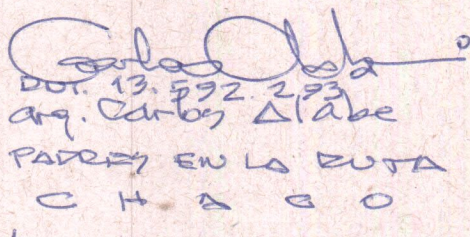 Carlos Alabe
DOT. 13.592.293
arq. Carlos Alabe
PADRES EN LA RUTA
CHACO